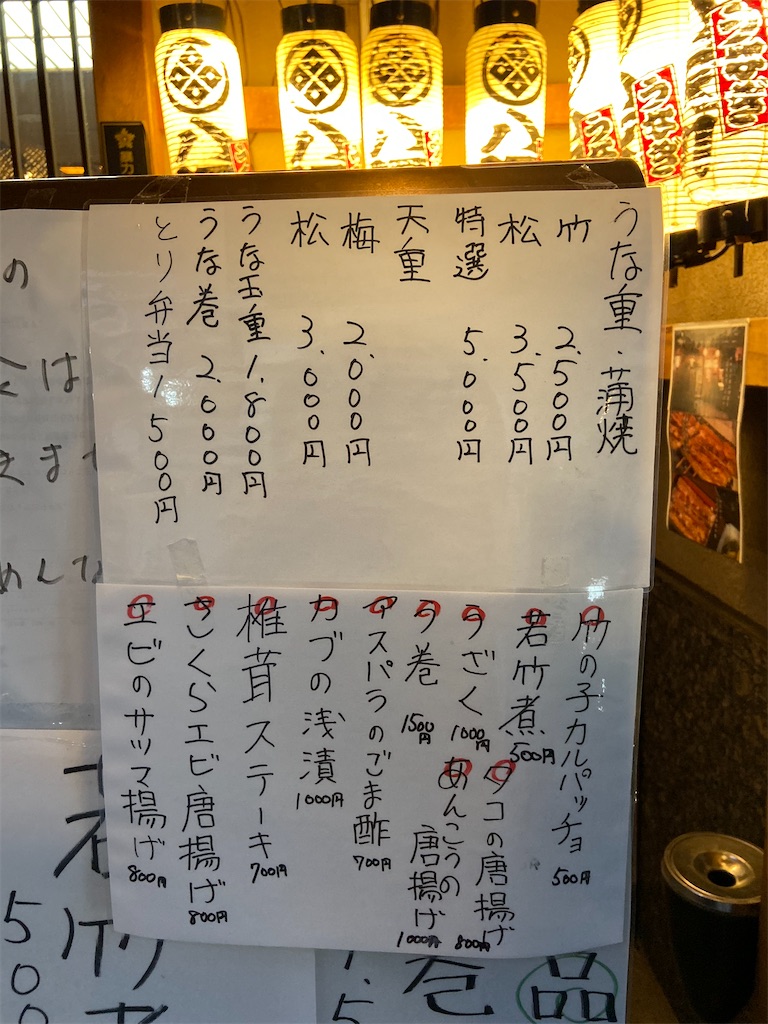 うな重・蒲焼
竹 2.500円
松 3.500円
特選 5.000円
天重
梅 2.000円
松 3.000円
うな玉重 1.800円
うな巻 2.000円
とり弁当 1500円
竹の子カルパッチョ 500円
若竹煮 500円
タコの唐揚げ 800円
うざく 1000円
あんこうの唐揚げ 1000円
う巻 1500円
アスパラのごま酢 700円
カブの浅漬 1000円
椎茸ステーキ 700円
さくらエビ唐揚げ 800円
エビのサツマ揚げ 800円
うなぎ
うなぎ
品
巻
1.5
若竹
500
の
は
めんな